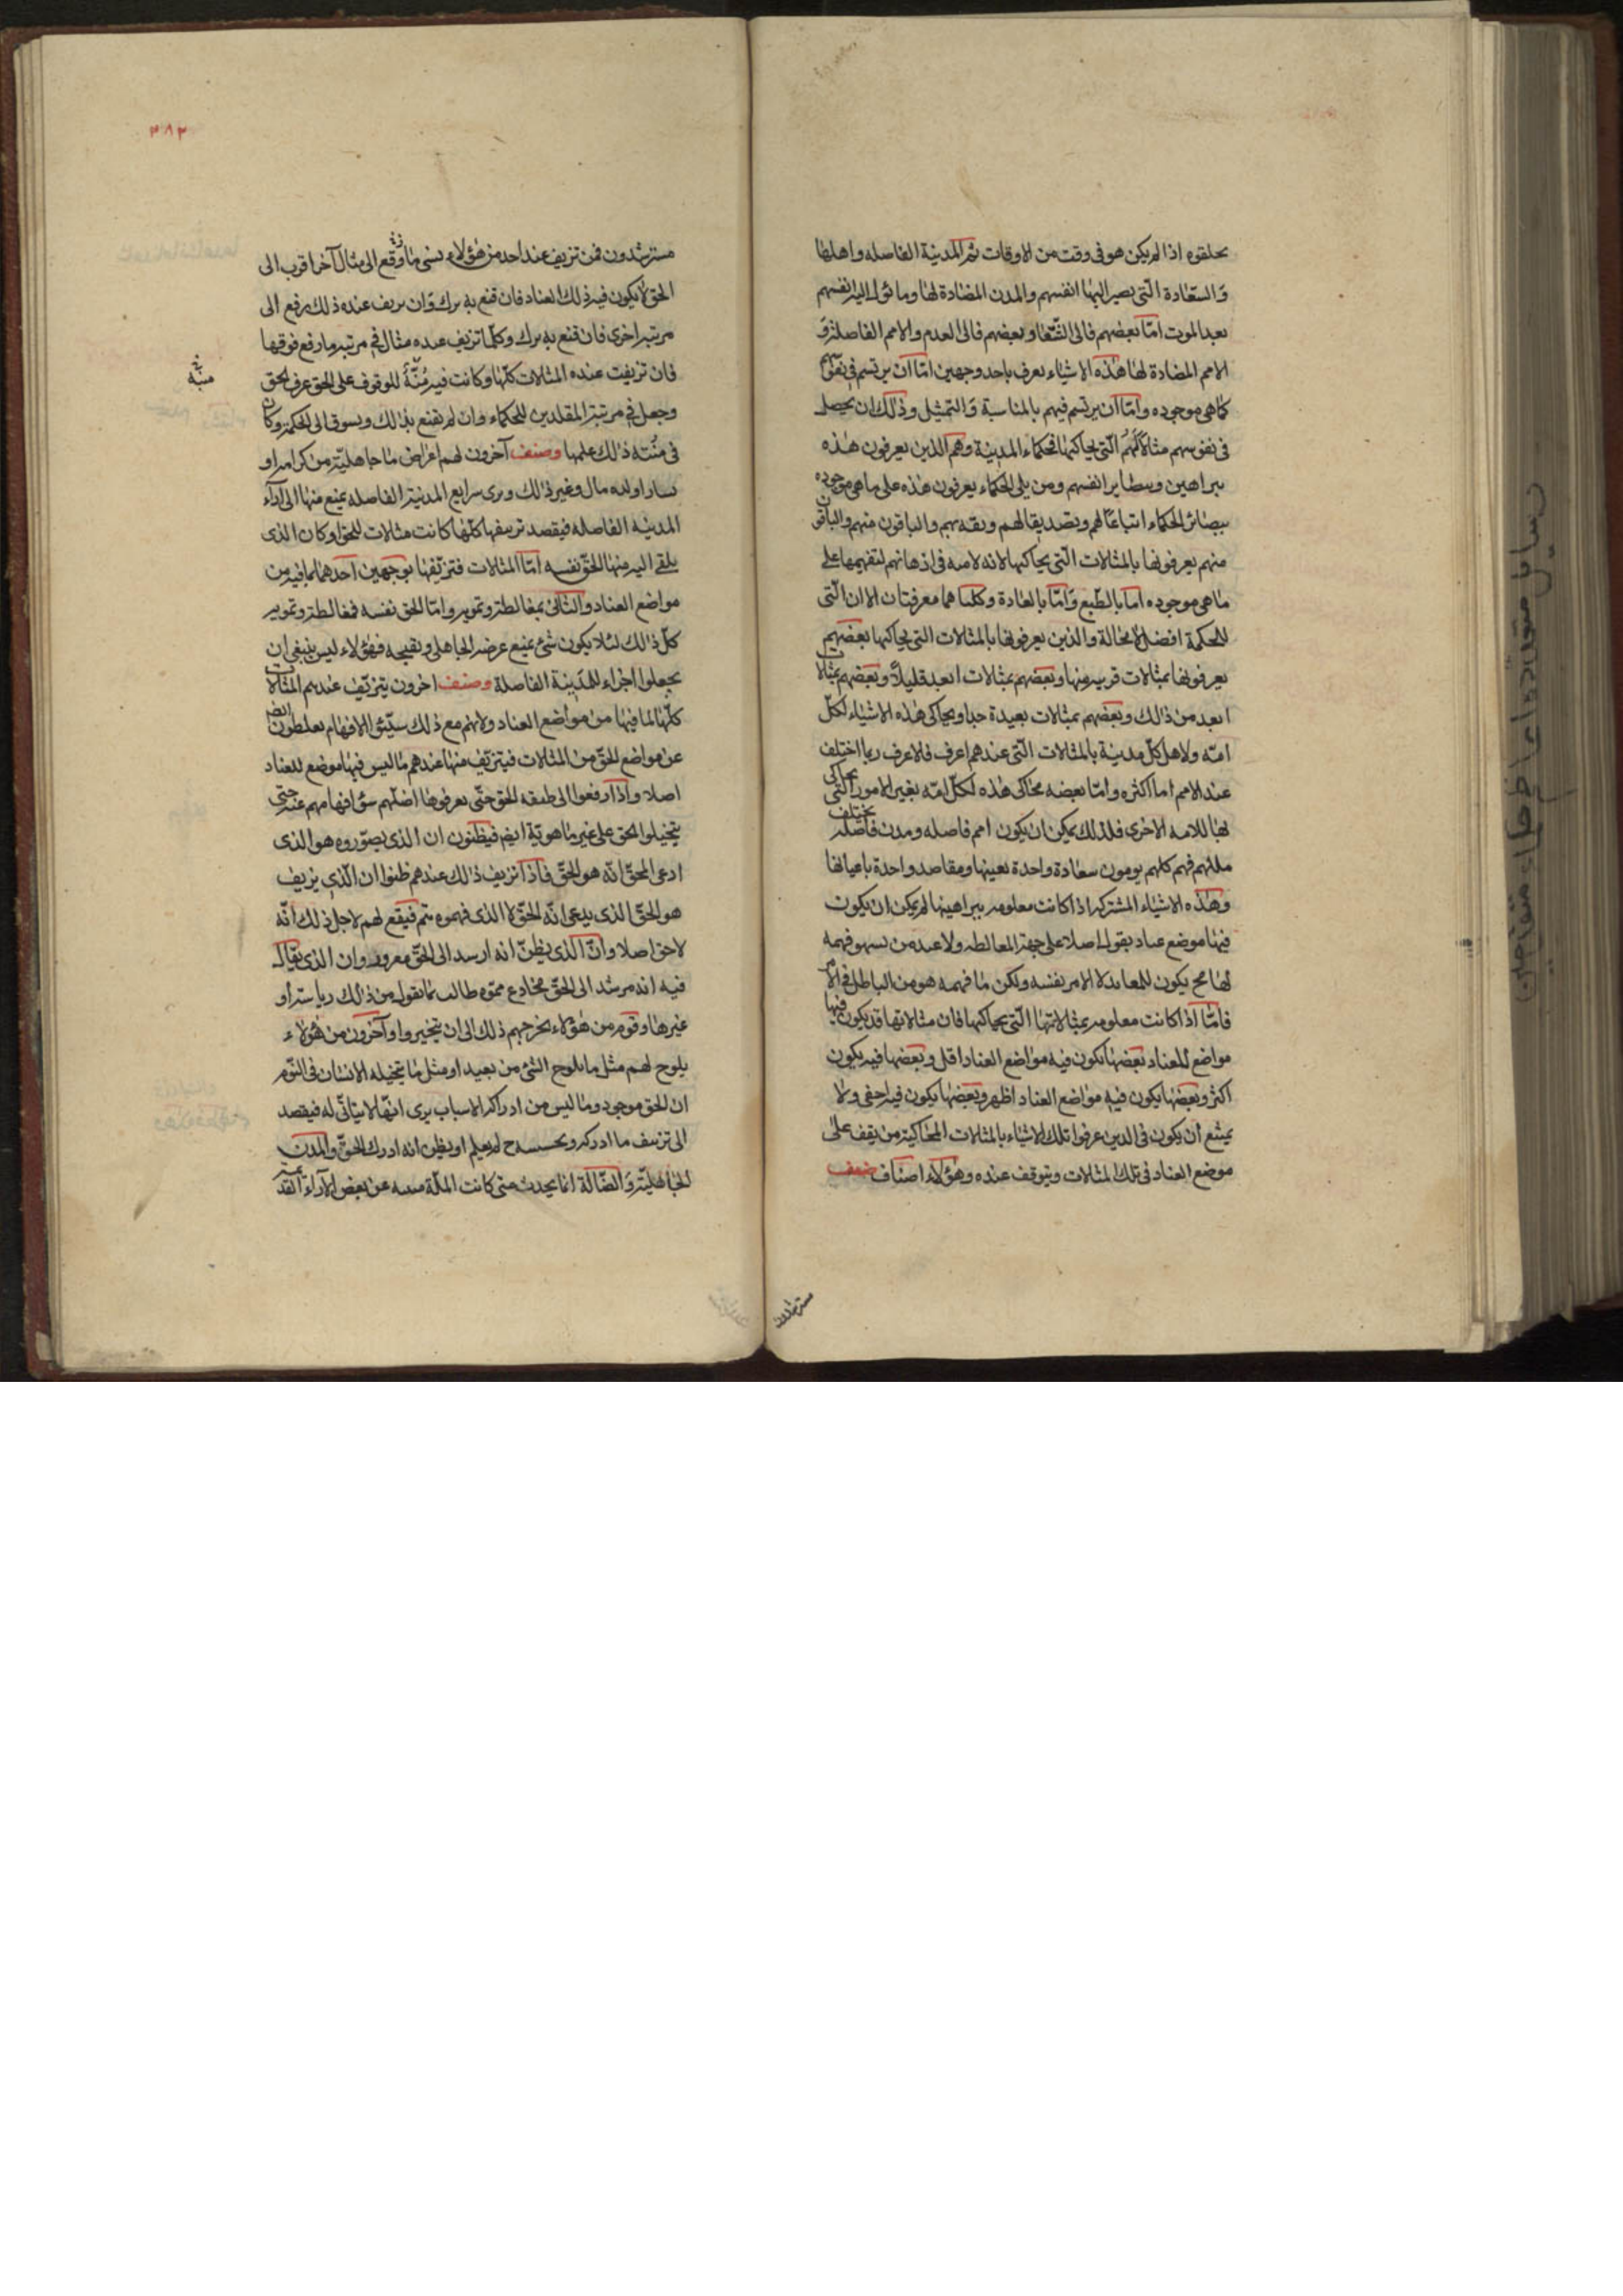 يخلفوه اذا لم يكن هو فى وقت من الاوقات ثم المدينة الفاضله واهلها
والسعادة التى يصير اليها انفسهم والمدن المضادة لها وما تؤل اليه انفسهم
بعد الموت امّا بعضهم فالى الشقا وبعضهم فالى العدم والامم الفاضلة و
الامم المضادة لها هذه الاشياء يعرف باحد وجهين امّا ان يرتسم فى نفوسهم
كما هى موجوده وامّا ان يرتسم فيهم بالمناسبة والتمثيل وذلك ان يحصل
فى نفوسهم مثالاتهم التى يحاكيها فحكماء المدينة وهم الذين يعرفون هذه
ببراهين وببصاير انفسهم ومن يلى الحكماء يعرفون هذه على ما هى موجوده
ببصائر الحكماء اتباعا لهم وتصديقا لهم وثقه بهم والباقون منهم والباقون
منهم يعرفونها بالمثالات التى يحاكيها لانه لا هيئه فى اذهانهم لتفهيمها على
ما هى موجوده اما بالطبع وامّا بالعادة وكلتا هما معرفتان الا ان التى
للحكمة افضل لا محالة والذين يعرفونها بالمثالات التى يحاكيها بعضهم
يعرفونها بمثالات قريبه منها وبعضهم بمثالات ابعد قليلا وبعضهم بمثالات
ابعد من ذلك وبعضهم بمثالات بعيدة جدا ويحاكى هذه الاشياء لكلّ
امّه ولاهل كلّ مدينة بالمثالات التى عندهم اعرف فالاعرف ربما اختلف
عند الامم اما اكثره وامّا بعضه محاكى هذه لكلّ امّه بغير الامور التى يحاكى
بها للامه الاخرى فلذلك يمكن ان يكون امم فاضله ومدن فاضله يختلف
مللهم فهم كلهم يومون سعادة واحدة بعينها ومقاصد واحدة باعيانها
وهذه الاشياء المشتركه اذا كانت معلومه ببراهينها لم يمكن ان يكون
فيها موضع عناد بقول اصلا على جهة المغالطه ولا عند من يسوء فهمه
لها فح يكون للمعاند لا الامر نفسه ولكن ما فهمه هو من الباطل فى الامر
فامّا اذا كانت معلومه بمثالاتها التى يحاكيها فان مثالاتها قد يكون فيها
مواضع للعناد بعضها يكون فيه مواضع العناد اقل وبعضها فيه يكون
اكثر وبعضها يكون فيه مواضع العناد اظهر وبعضها يكون فيه اخفى ولا
يمتنع ان يكون فى الذين عرفوا تلك الاشياء بالمثالات المحاكية من يقف على
موضع العناد فى تلك المثالات ويتوقف عنده وهؤلاء اصناف صنف
مسترشدون
٣٨٢
مسترشدون فمن تزيف عند احد من هؤلاء شىء ما رفع الى مثال آخر اقرب الى
الحق لا يكون فيه ذلك العناد فان قنع به ترك وان تزيف عنده ذلك رفع الى
مرتبه اخرى فان قنع به ترك وكلما تزيف عنده مثال فى مرتبه ما رفع فوقها
فان تزيفت عنده المثالات كلّها وكانت فيه مُنّة للوقوف على الحق عرف الحق
وجعل فى مرتبة المقلدين للحكماء وان لم يقنع بذلك ويسوق الى الحكمة وكان
فى منّته ذلك علمها وصنف آخرون لهم اغراض ما جاهليّة من كرامه او
يسار او لذه مال وغير ذلك ويرى شرايع المدينة الفاضله يمنع منها الى آراء
المدينه الفاضله فيقصد تزييفها كلّها كانت مثالات للحق او كان الذى
يلقى اليه منها الحق نفسه امّا المثالات فتزيّفها بوجهين احدهما بما فيه من
مواضع العناد والثانى بمغالطة وتمويه وامّا الحق نفسه فمغالطة وتمويه
كلّ ذلك لئلا يكون شئ يمنع غرضه الجاهلى وتقبيحه فهؤلاء ليس ينبغى ان
يجعلوا اجزاء للمدينة الفاضلة وصنف اخرون يتزيّف عندهم المثالات
كلّها لما فيها من مواضع العناد ولانهم مع ذلك سيّئو الافهام يغلطون ايضا
عن مواضع الحقّ من المثالات فيتزيّف منها عندهم ما ليس فيها موضع للعناد
اصلا واذا رفعوا الى طبقه الحق حتّى يعرفوها اضلّهم سؤ افهامهم عنه حتى
يتخيلوا الحق على غير ما هو يّة ايضا فيظنون ان الذى يصوّروه هو الذى
ادعى المحقّ انّه هو الحقّ فاذا تزيف ذلك عندهم ظنوا ان الّذى يزيف
هو الحقّ الذى يدعى انّه الحقّ لا الذى فهموه ثم فيقع لهم لاجل ذلك انّه
لا حق اصلا وانّ الذى يظنّ انه ارشد الى الحقّ مغرور وان الذى يقال
فيه انه مرشد الى الحقّ مخادع مموّه طالب بما يقول من ذلك رياسة او
غيرها وقوم من هؤلاء يخرجهم ذلك الى ان يتحيروا وآخرون من هؤلاء
يلوح لهم مثل ما يلوح الشئ من بعيد او مثل ما يتخيله الانسان فى النّوم
ان الحق موجود وما ليس من ادراكه الاسباب يرى انها لا يتاتّى له فيقصد
الى تزييف ما ادركه و لم يعلم او يظن انه ادرك الحقّ والمدن
الجاهليّة والضّالة انما يحدث متى كانت الملّة مبنيه عن بعض الآراء القديمة